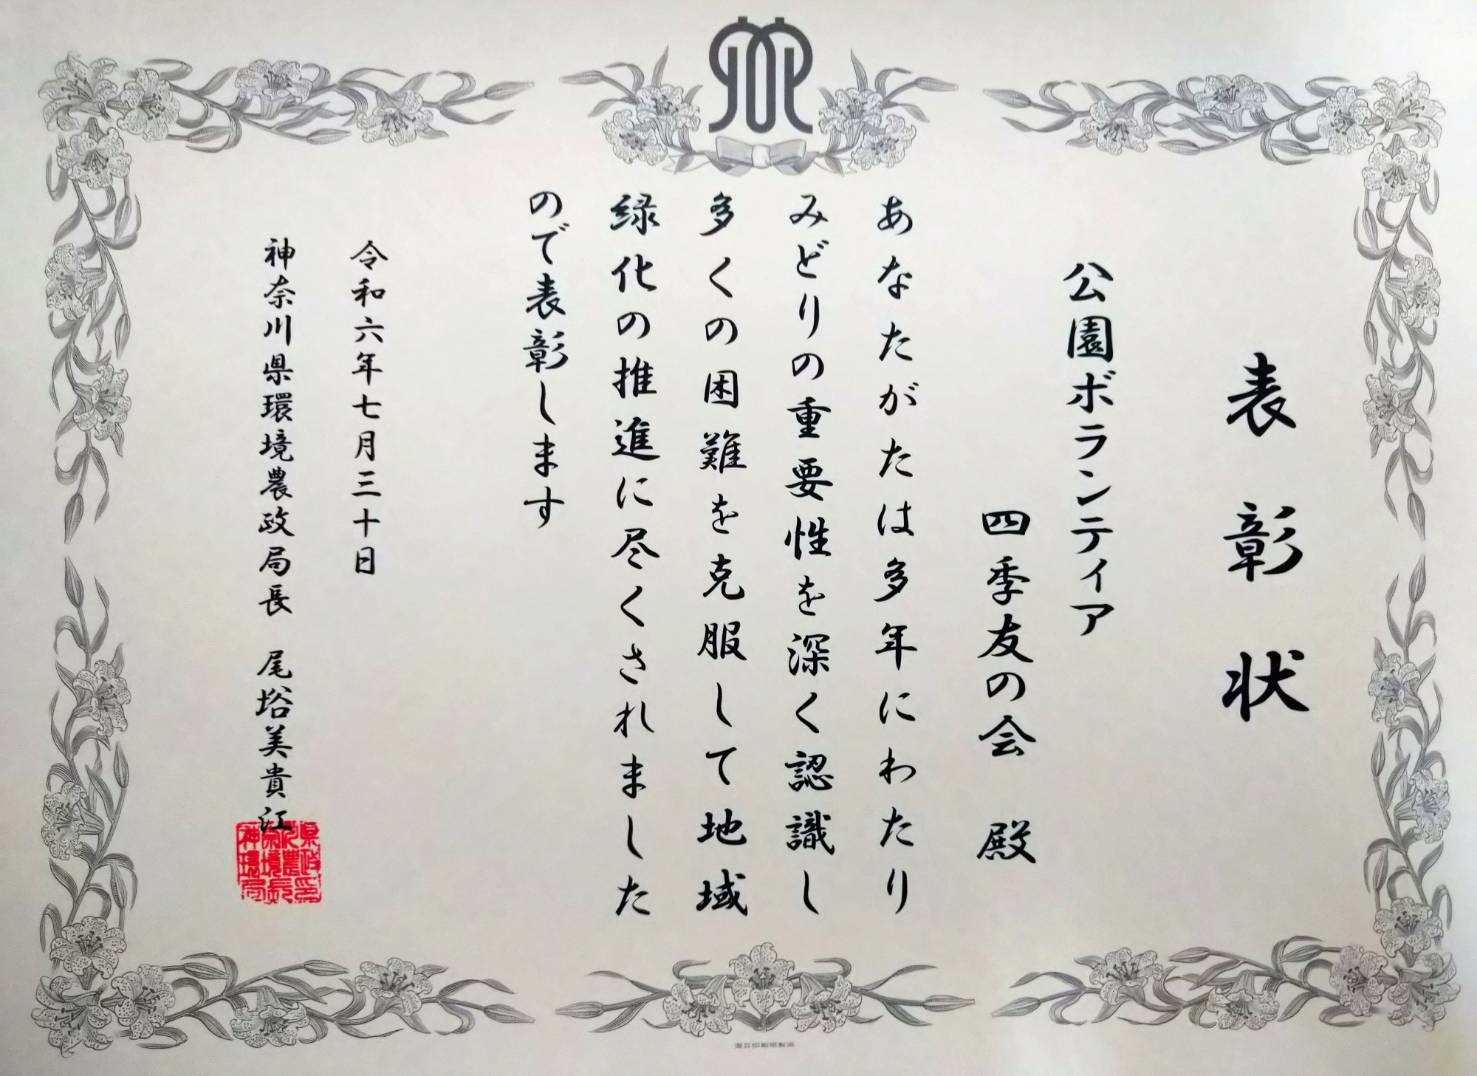 表彰状
公園ボランティア
四季友の会 殿
あなたがたは多年にわたり
みどりの重要性を深く認識し
多くの困難を克服して地域
緑化の推進に尽くされました
ので表彰します
令和六年七月三十日
神奈川県環境農政局長 尾㟢美貴江